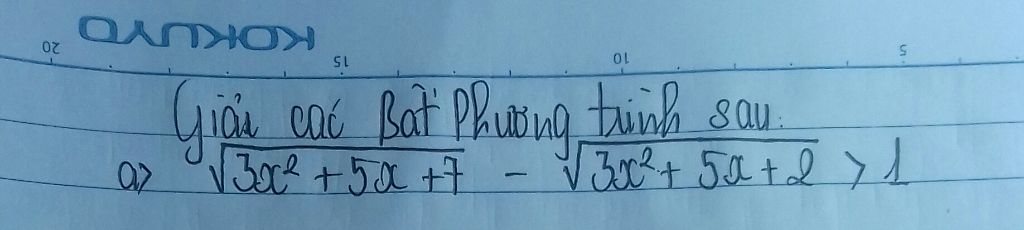 KOKUYO
20 15 10 5
Giải các Bất Phương trình sau:
a> √3x² + 5x + 7 - √3x² + 5x + 2 > 1